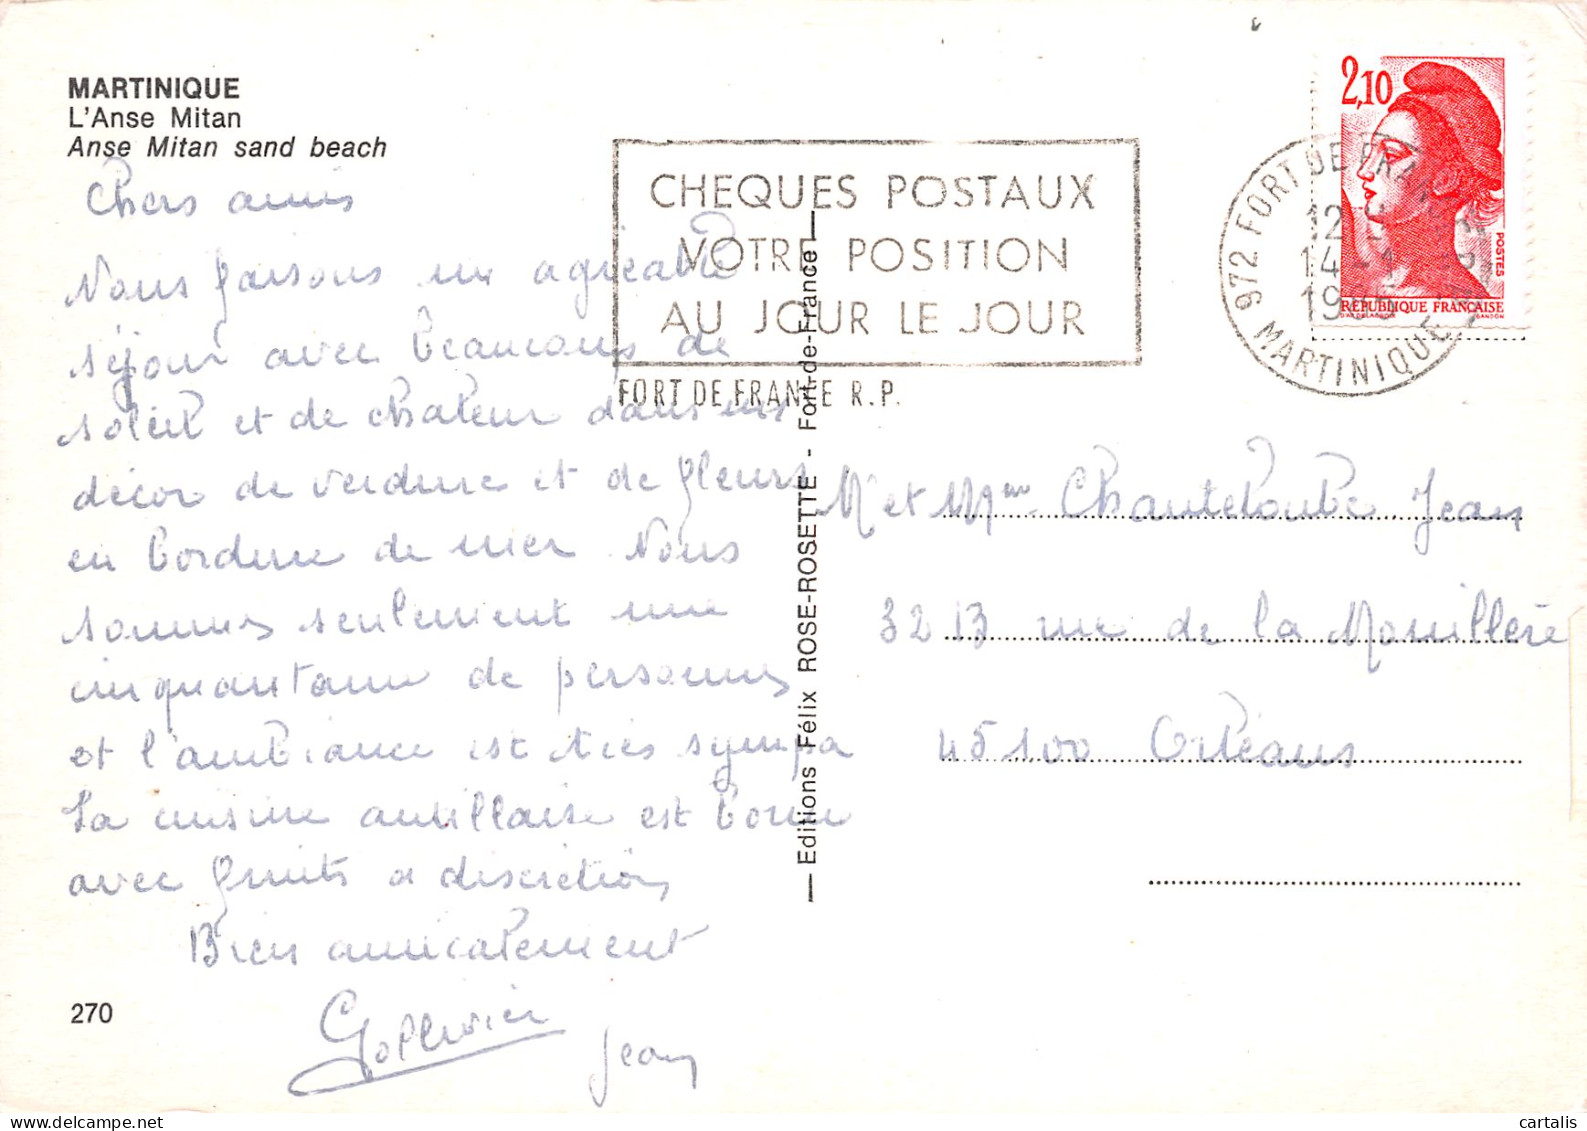 MARTINIQUE
L'Anse Mitan
Anse Mitan sand beach
Chers amis
Nous faisons un agréable
séjour avec beaucoup de
soleil et de chaleur dans un
décor de verdure et de fleurs
en bordure de mer. Nous
sommes seulement une
cinquantaine de personnes
et l'ambiance est très sympa
La cuisine antillaise est bonne
avec fruits a discrétion
Bien amicalement
Jean
270
Editions Félix ROSE-ROSETTE - Fort-de-France
CHEQUES POSTAUX
VOTRE POSITION
AU JOUR LE JOUR
FORT DE FRANCE R.P.
2,10
POSTES
REPUBLIQUE FRANÇAISE
972 FORT DE FRANCE
12
14
19
MARTINIQUE
Mr et Mme Chanteloube Jean
32 B rue de la Mouillère
45100 Orléans
cartalis